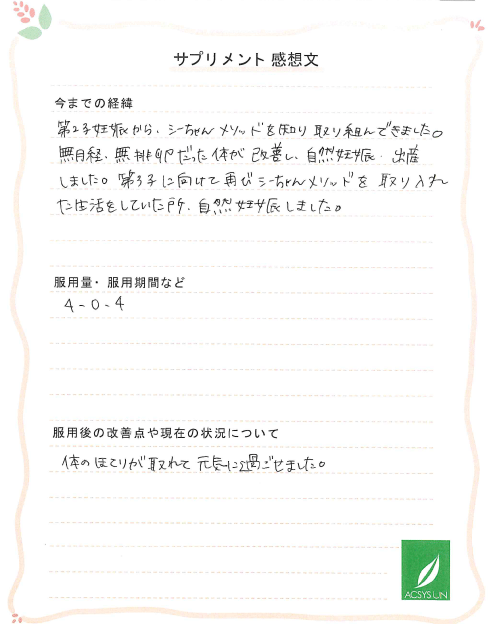 サプリメント 感想文
今までの経緯
第2子妊娠から、シーちゃんメソッドを知り取り組んできました。
無月経、無排卵だった体が改善し、自然妊娠、出産
しました。第3子に向けて再びシーちゃんメソッドを取り入れ
た生活をしていた所、自然妊娠しました。
服用量・服用期間など
4-0-4
服用後の改善点や現在の状況について
体のほてりが取れて元気に過ごせました。
ACSYS UN